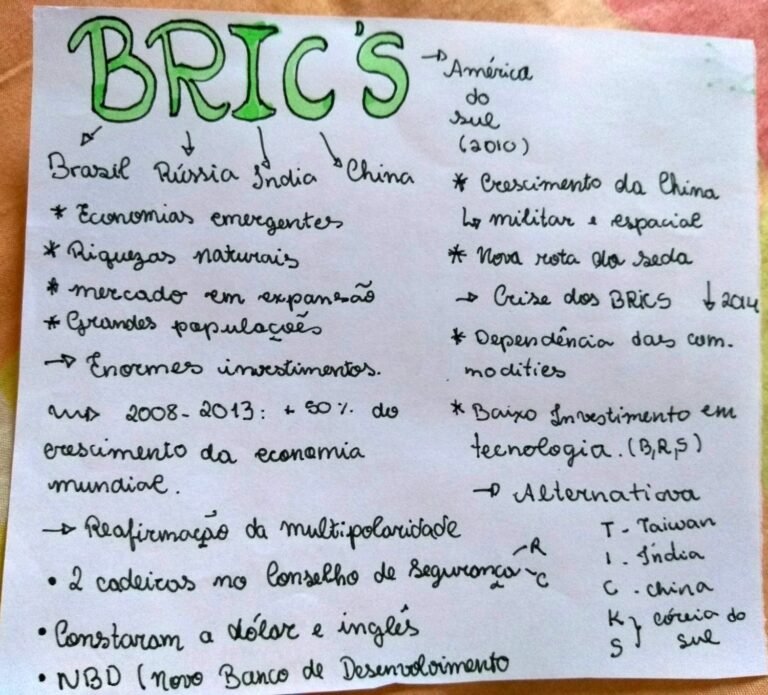 BRIC'S
Brazil Rússia Índia China
* Economias emergentes
* Riquezas naturais
* mercado em expansão
* Grandes populações
→ Enormes investimentos.
→ 2008-2013: + 50% do
crescimento da economia
mundial.
→ Reafirmação da multipolaridade
• 2 cadeiras no Conselho de Segurança R
C
• Constaram a dólar e inglês
• NBD (Novo Banco de Desenvolvimento
→ América
do
sul
(2010)
* Crescimento da China
↳ militar e espacial
* Nova rota da seda
→ Crise dos BRICS ↓ 2014
* Dependência das com.
modities
* Baixo Investimento em
tecnologia. (B,R,S)
→ Alternativa
T - Taiwan
I . Índia
C . china
K } córeia do
S sul